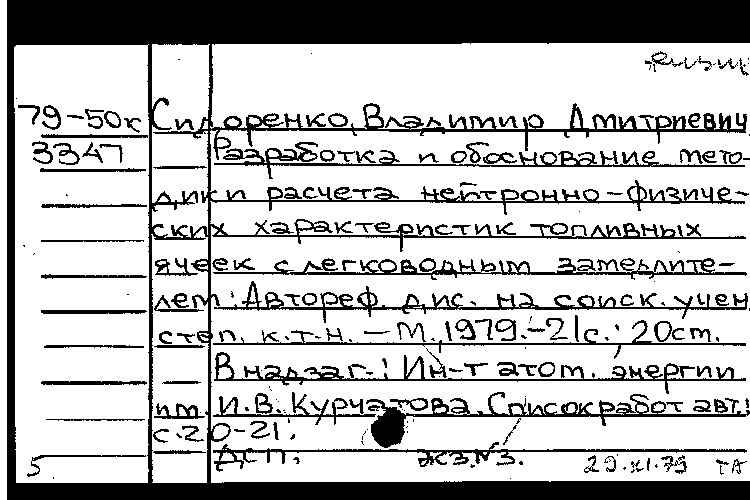 79-50к Сидоренко, Владимир Дмитриевич
3347 Разработка и обоснование мето-
дики расчета нейтронно-физиче-
ских характеристик топливных
ячеек с легководным замедлите-
лем: Автореф. дис. на соиск. учен
степ. к.т.н. – М., 1979.-21с.; 20см.
В надзаг.: Ин-т атом. энергии
им. И.В. Курчатова. Список работ авт.:
с.20-21.
ДСП. экз.№3.
5 29.XI.79 ТА